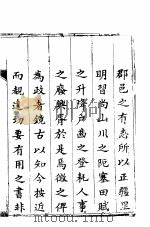 郡邑之有志所以正疆里
明習尚山川之阨塞田賦
之升降戶口之登耗人事
之廢興於是焉徵之俾
為政者鏡古以知今按近
而規遠切要有用之書非